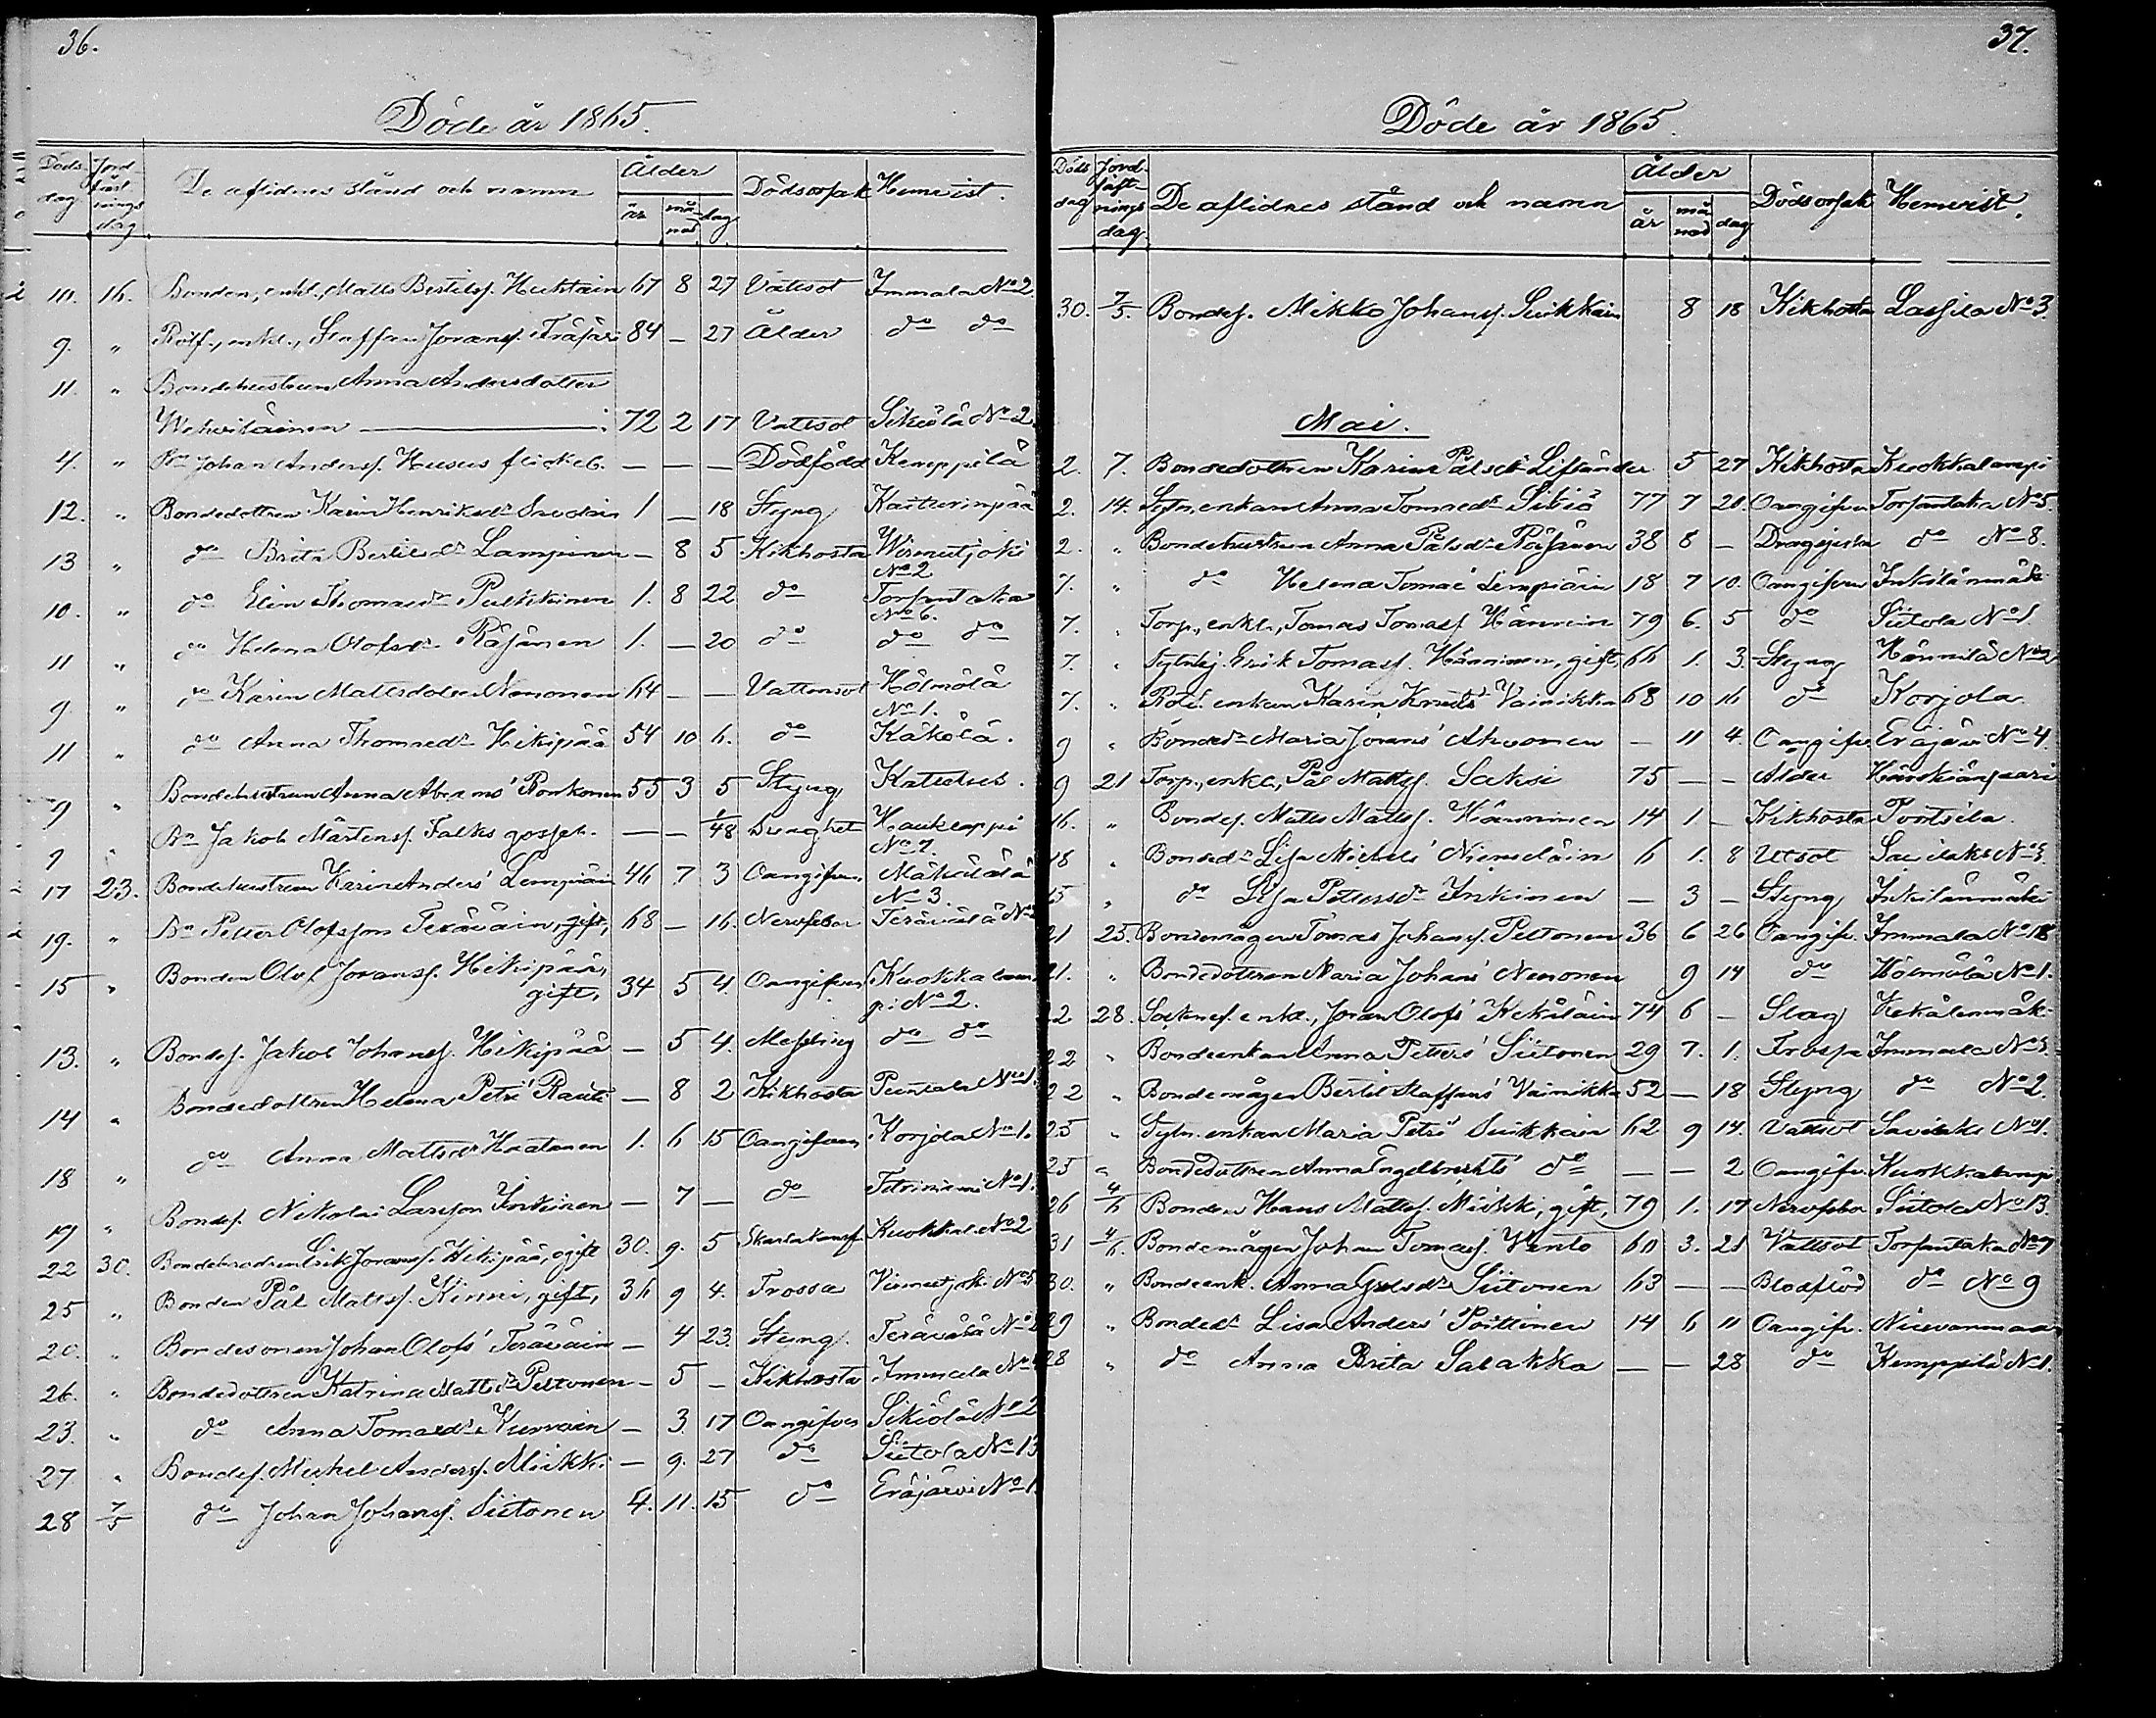 36.
Döde år 1865.
Döds dag Jordfästnings dag De aflidnes stånd och namn Ålder år månad dag Dödsorsak Hemvist.
10. 16. Bonden, enkl., Matts Bertilsf. Huhtain 67 8 27 Vattsot Immala No 2.
9. " Rotf., enkl., Staffan Joransf. 84 — 27 Ålder do do
11. " Bondehustrun Anna Andersdotter
Wehviläinen — 72 2 17 Vattsot Sikiölä No 2.
4. " Bn Johan Andersf. Husus flickeb. — — — Dödfödd Kemppilä
12. " Bondedottren Karin Henriksdr 1 — 18 Styng
13 " do Brita Bertilsdr Lampinen — 8 5 Kikhosta Wirmutjoki
No 2
10. " do Elin Thomaedr Pulkkinen 1. 8 22 do Torsantaka
No 6.
11 " do Helena Olofsdr Räsänen 1. — 20 do do do
9. " do Karin Mattsdoter Nenonen 64 — — Vattensot Hölmölä
No 1.
11 " do Anna Thomaedr Hikipää 54 10 6. do Käkölä.
9 " Bondehustrun Anna Abrams' Ronkonen 55 3 5 Styng
9 " Bn Jakob Mårtensf. Falks gosseb. — — 1/48 Haukkappi
No 7.
17 23. Bondehustrun Karin Anders' Lempiäin 46 7 3 Oangifven. Mäkälälä
No 3.
19. " Bn Petter Olofsson Teräväin, gift, 68 — 16. Nervfeber Terävälä
15 " Bonden Olof Joransf. Hikipää,
gift, 34 5 4. Oangifven Kuokkalam
pi No 2.
13. " Bondes. Jakob Johansf. Hikipää — 5 4. Messling do do
14 " Bondedottren Helena Petri' Rauti — 8 2 Kikhosta No 1.
18 " do Anna Mattsdr Haatanen 1. 6 15 Oangifven Korjola No 1.
19 " Bondes. Nikolai Larsson Inkinen — 7 — do No 1.
22 30. Bondebrodren Erik Joransf. Hikipää, ogift 30. 9. 5 Kuokkal. No 2
25 " Bonden Pål Mattsf. Kinni, gift, 36 9 4. Trossa
20. " Bondesonen Johan Olofs' Teräväin — 4 23. Styng. Terävälä
26. " Bondedottren Katrina Mattsdr Peltonen — 5 — Kikhosta Immala
23. " do Anna Tomaedr Kurvain — 3. 17 Oangifven Sikiölä No 2
27 " Bondes. Mickel Andersf. Miikki — 9. 27 do Siitola No 13
28 7/5 do Johan Johansf. Siitonen 4. 11. 15 do Eräjärvi No 1.
37.
Döde år 1865.
Döds dag Jordfästnings dag. De aflidnes stånd och namn Ålder år månad dag Dödsorsak Hemvist.
30. 7/5. Bondes. Mikko Johansf. Suikkain 8 18 Kikhosta Lassila No 3.
Mai.
2. 7. Bondedottren Karin Pålsdr Lifländer 5 27 Kikhosta Kuokkalampi
2. 14. Sytn. enkan Anna Tomaedr Sikiö 77 7 20. Oangifven Torsantaka No 5.
2. " Bondehustrun Anna Pålsdr Räsänen 38 8 — do No 8.
7. " do Helena Tomae' Lempiäin 18 7 10. Oangifven Inkilänmäki
7. " Torp., enkl., Tomas Tomasf. Hännin 79 6. 5 do Siitola No 1.
7. " Erik Tomasf. Hänninen, gift, 66 1. 3. Styng Hännilä
7. " enkan Karin Knuts' Vainikka 68 10 16 do Korjola.
9 " Bondedr Maria Jorans' Ahvonen — 11 4. Oangifv. Eräjärvi No 4.
9 21 Torp., enkl., Pål Mattsf. Saksi 75 — — Ålder
16. " Bondes. Matts Mattsf. Hänninen 14 1 — Kikhosta Pontsila.
18 " Bondedr Lisa Michels' Niemeläin 6 1. 8 Utsot
15 " do Lisa Pettersdr Inkinen — 3 — Styng Inkilänmäki
21 25. Bondemågen Tomas Johansf. Peltonen 36 6 26 Oangifv. Immala No 18
21. " Bondedottren Maria Johans' Nenonen 9 14 do Hölmölä No 1.
22 28. enkl., Joran Olofs' Kekäläin 74 6 — Slag Kekälenmäki
22 " Bondeenkan Anna Petters' Siitonen 29 7. 1. Trossa Immala No 3.
22 " Bondemågen Bertil Staffans' Vainikka 52 — 18 Styng do No 2.
25 " Sytn. enkan Maria Petri' Suikkain 62 9 14. Vattsot
25 " Bondedottren Anna Engelbrechts' do — — 2 Oangifv. Kuokkalampi
26 4/6 Bonden Hans Mattsf. Miikki, gift, 79 1. 17 Nervfeber Siitola No 13.
31 4/6. Bondemågen Johan Tomasf. Vento 60 3. 21 Vattsot Torsantaka No 7
30. " Bondeenk. Anna Siitonen 63 — — Blodflöd do No 9
29 " Bondedr Lisa Anders' Poittinen 14 6 11 Oangifv.
28 " do Anna Brita Salakka — — 28 do Kemppilä No 1.